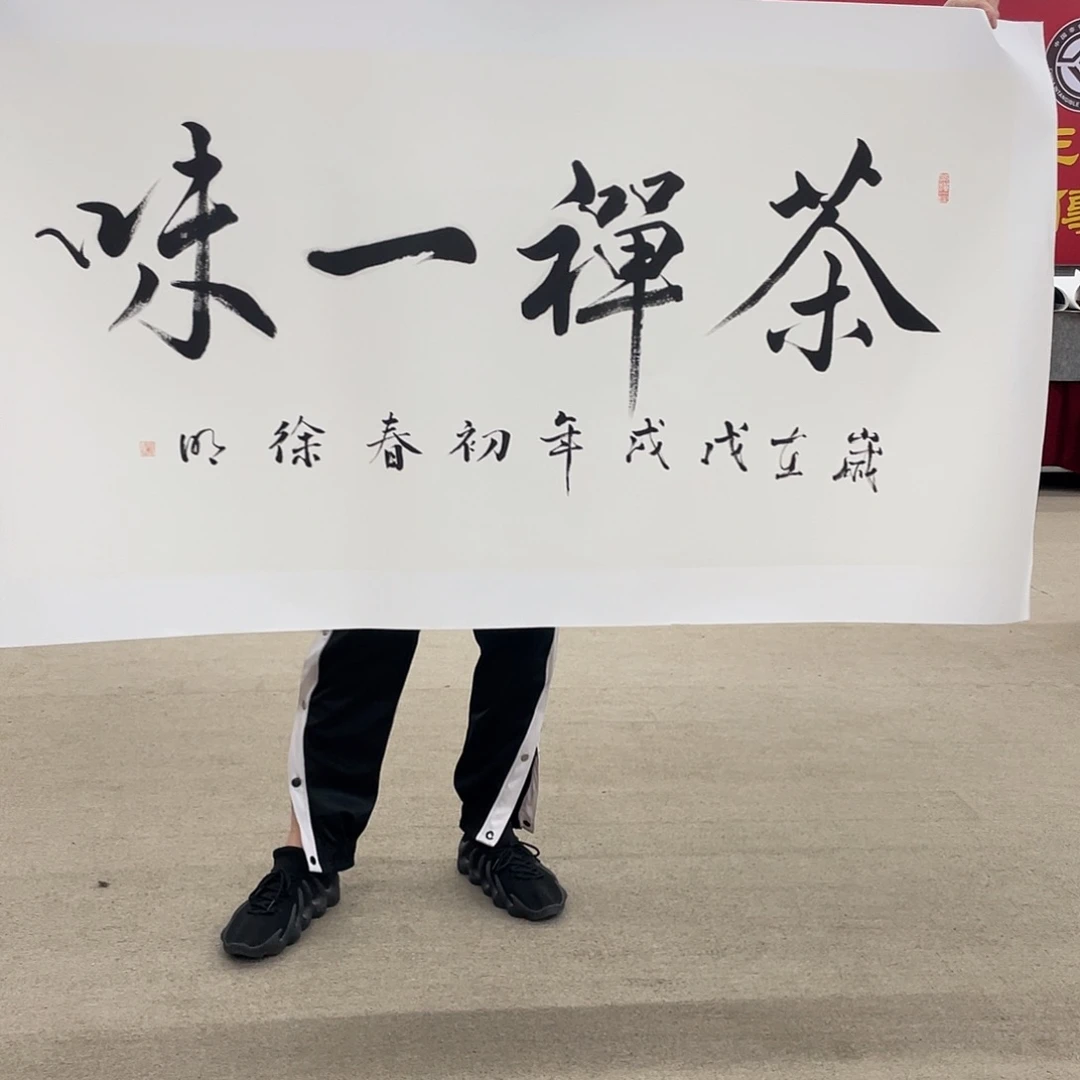 茶禪一味
歲在戊戌年初春徐明